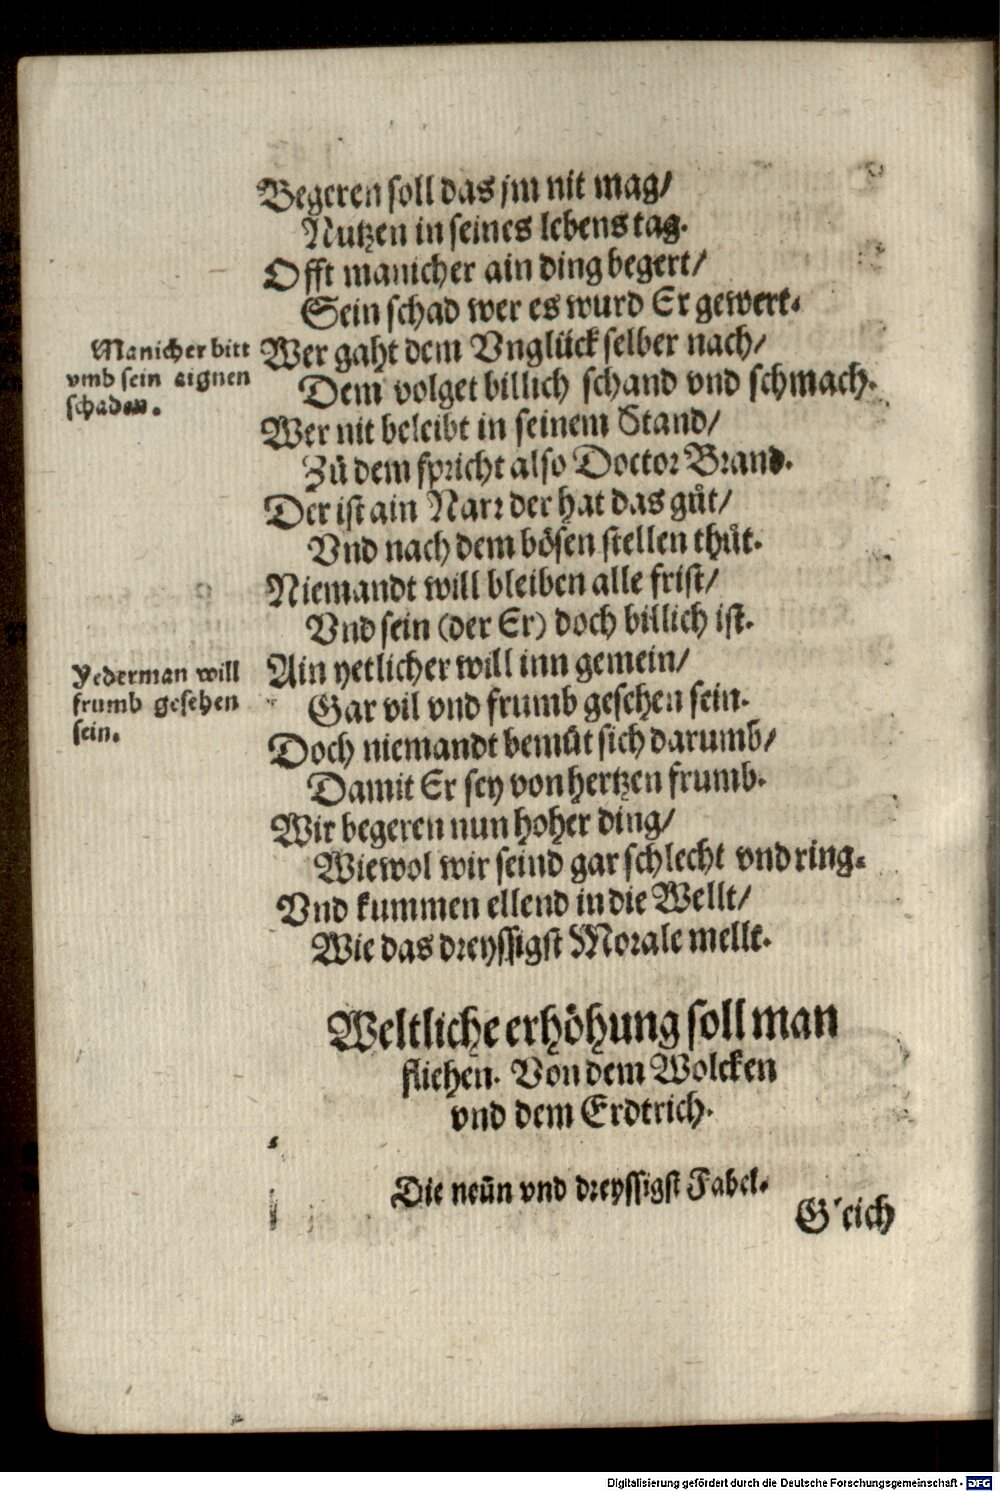 Begeren soll das jm nit mag/
Nutzen in seines lebens tag.
Offt manicher ain ding begert/
Sein schad wer es wurd Er gewert.
Manicher bitt
vmb sein aignen
schaden.
Wer gaht dem Vnglück selber nach/
Dem volget billich schand vnd schmach.
Wer nit beleibt in seinem Stand/
Zů dem spricht also Doctor Brand.
Der ist ain Narr der hat das gůt/
Vnd nach dem bösen stellen thůt.
Niemandt will bleiben alle frist/
Vnd sein (der Er) doch billich ist.
Yederman will
frumb gesehen
sein.
Ain yetlicher will inn gemein/
Gar vil vnd frumb gesehen sein.
Doch niemandt bemůt sich darumb/
Damit Er sey von hertzen frumb.
Wir begeren nun hoher ding/
Wiewol wir seind gar schlecht vnd ring.
Vnd kummen ellend in die Wellt/
Wie das dreyssigst Morale mellt.
Weltliche erhöhung soll man
fliehen. Von dem Wolcken
vnd dem Erdtrich.
Die neün vnd dreyssigst Fabel.
Gleich
Digitalisierung gefördert durch die Deutsche Forschungsgemeinschaft - DFG